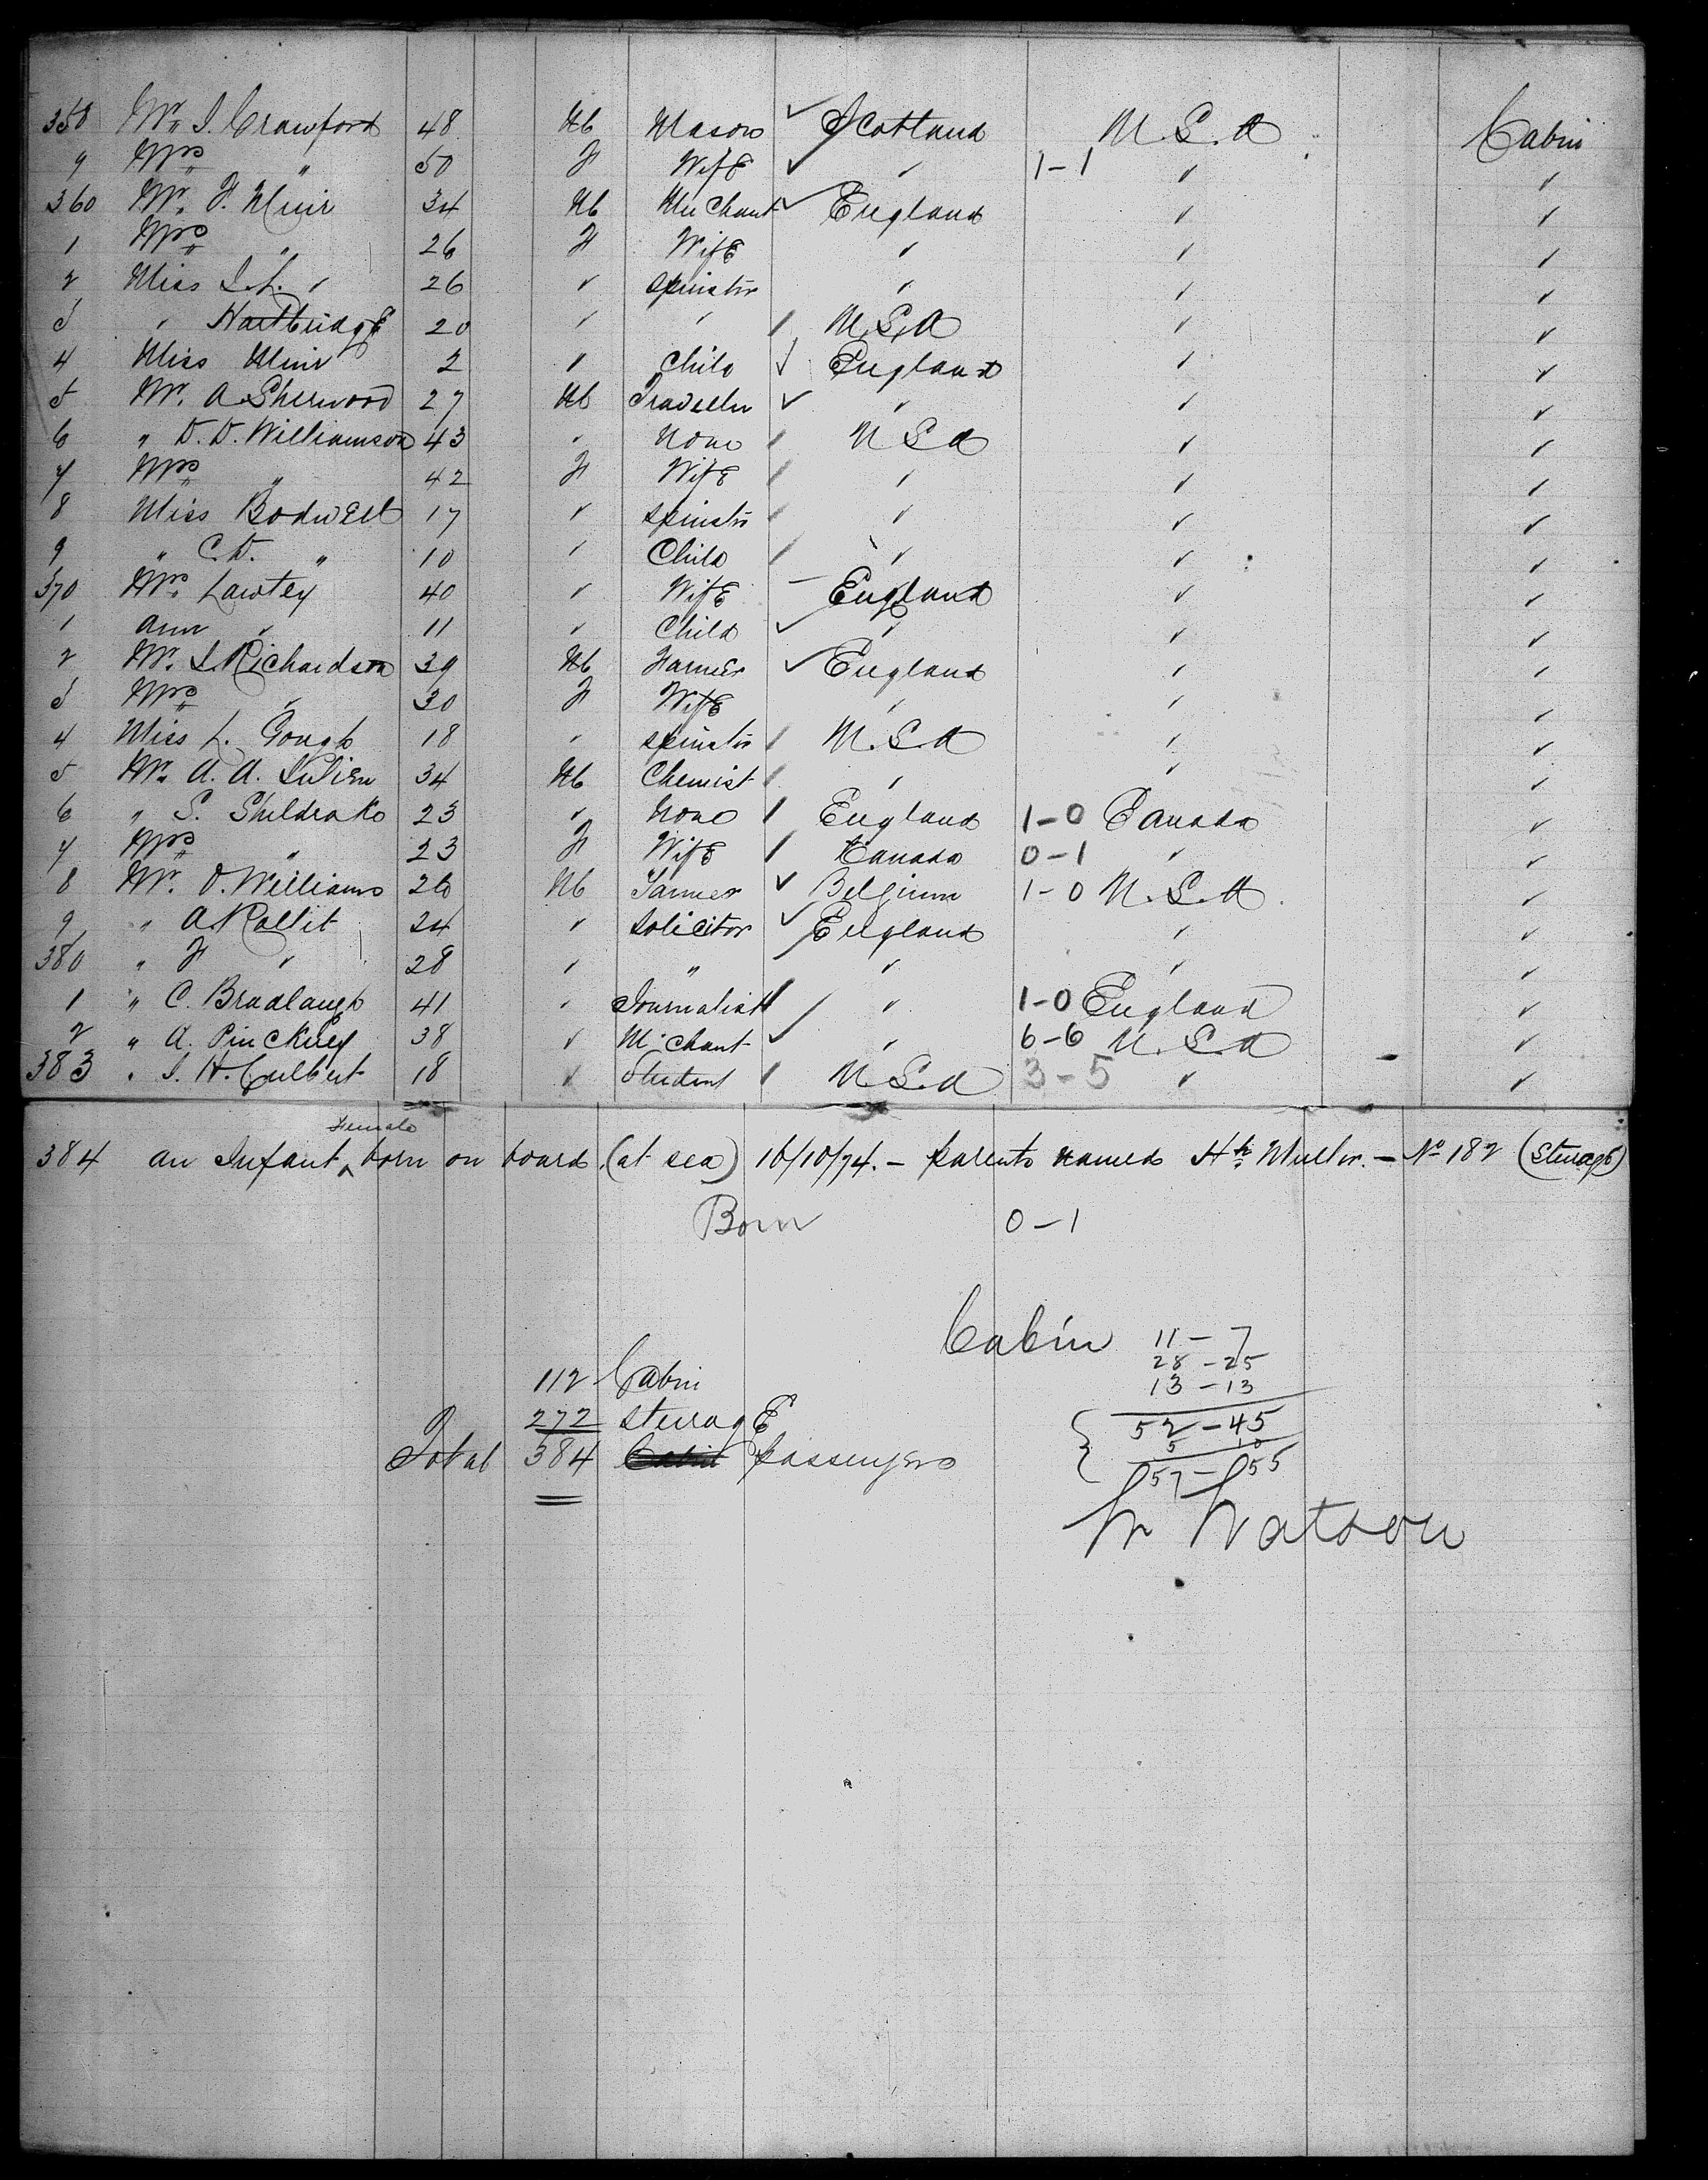 358 Mr. J. Crawford 48 M Mason ✓ Scotland U.S.A Cabin
9 Mrs " 50 F Wife ✓ " 1-1 " "
360 Mr. F. Muir 34 M Merchant ✓ England " "
1 Mrs " 26 F Wife " " "
2 Miss " 26 " Spinster " " "
3 " Hartbridge 20 " " / U.S.A " "
4 Miss Muir 2 " Child ✓ England " "
5 Mr. A. Sherwood 27 M Traveller ✓ " " "
6 " D. D. Williamson 43 " None / U S A " "
7 Mrs " 42 F Wife / " " "
8 Miss Bodwell 17 " Spinster / " " "
9 " C. D. " 10 " Child / " " "
370 Mrs. Lawtey 40 " Wife – England " "
1 Ann " 11 " Child ✓ " " "
2 Mr. J. Richardson 39 M Farmer ✓ England " "
3 Mrs " 30 F Wife " " "
4 Miss L. Gough 18 " Spinster / U.S.A " "
5 Mr. A. A. Julien 34 M Chemist / " " "
6 " S. Sheldrake 23 " None / England 1-0 Canada "
7 Mrs " 23 F Wife / Canada 0-1 " "
8 Mr. O. Williams 26 M Farmer ✓ Belgium 1-0 U.S.A. "
9 " A. Rollit 24 " Solicitor ✓ England " "
380 " F " 28 " " " " "
1 " C. Bradlaugh 41 " Journalist / " 1-0 England "
2 " A. Pinckney 38 " M'chant ✓ " 6-6 U.S.A "
383 " J. H. Culbert 18 " Student / U.S.A 3-5 " "
Female
384 an Infant ^ born on board. (at sea) 16/10/74. – parents named Muller. – No 182 (Steerage)
Born 0-1
Cabin 11-7
28-25
112 Cabin
13-13
272 Steerage
52-45
5 10
Total 384 passengers
57-55
W Watson